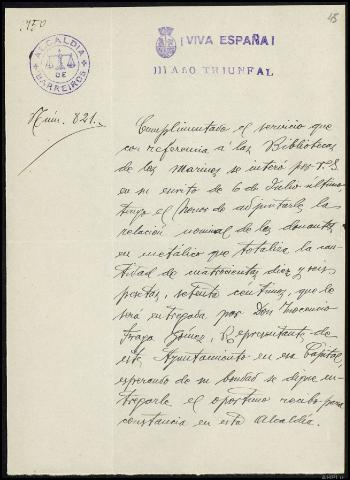 ¡VIVA ESPAÑA!
III AÑO TRIUNFAL
ALCALDIA DE BARREIROS
Núm. 821.-
Cumplimentado el servicio que
con referencia á las Bibliotecas
de los Marinos se interó por V.S.
en su escrito de 6 de Julio último
tengo el honor de adjuntarle la
relación nominal de los donantes
en metálico que totaliza la can-
tidad de cuatrocientas diez y seis
pesetas, setenta céntimos, que le
será entregada por Don Inocencio
Fraga Gómez, Representante de
este Ayuntamiento en esa Capital,
esperando de su bondad se digne en-
tregarle el oportuno recibo para
constancia en esta Alcaldía.